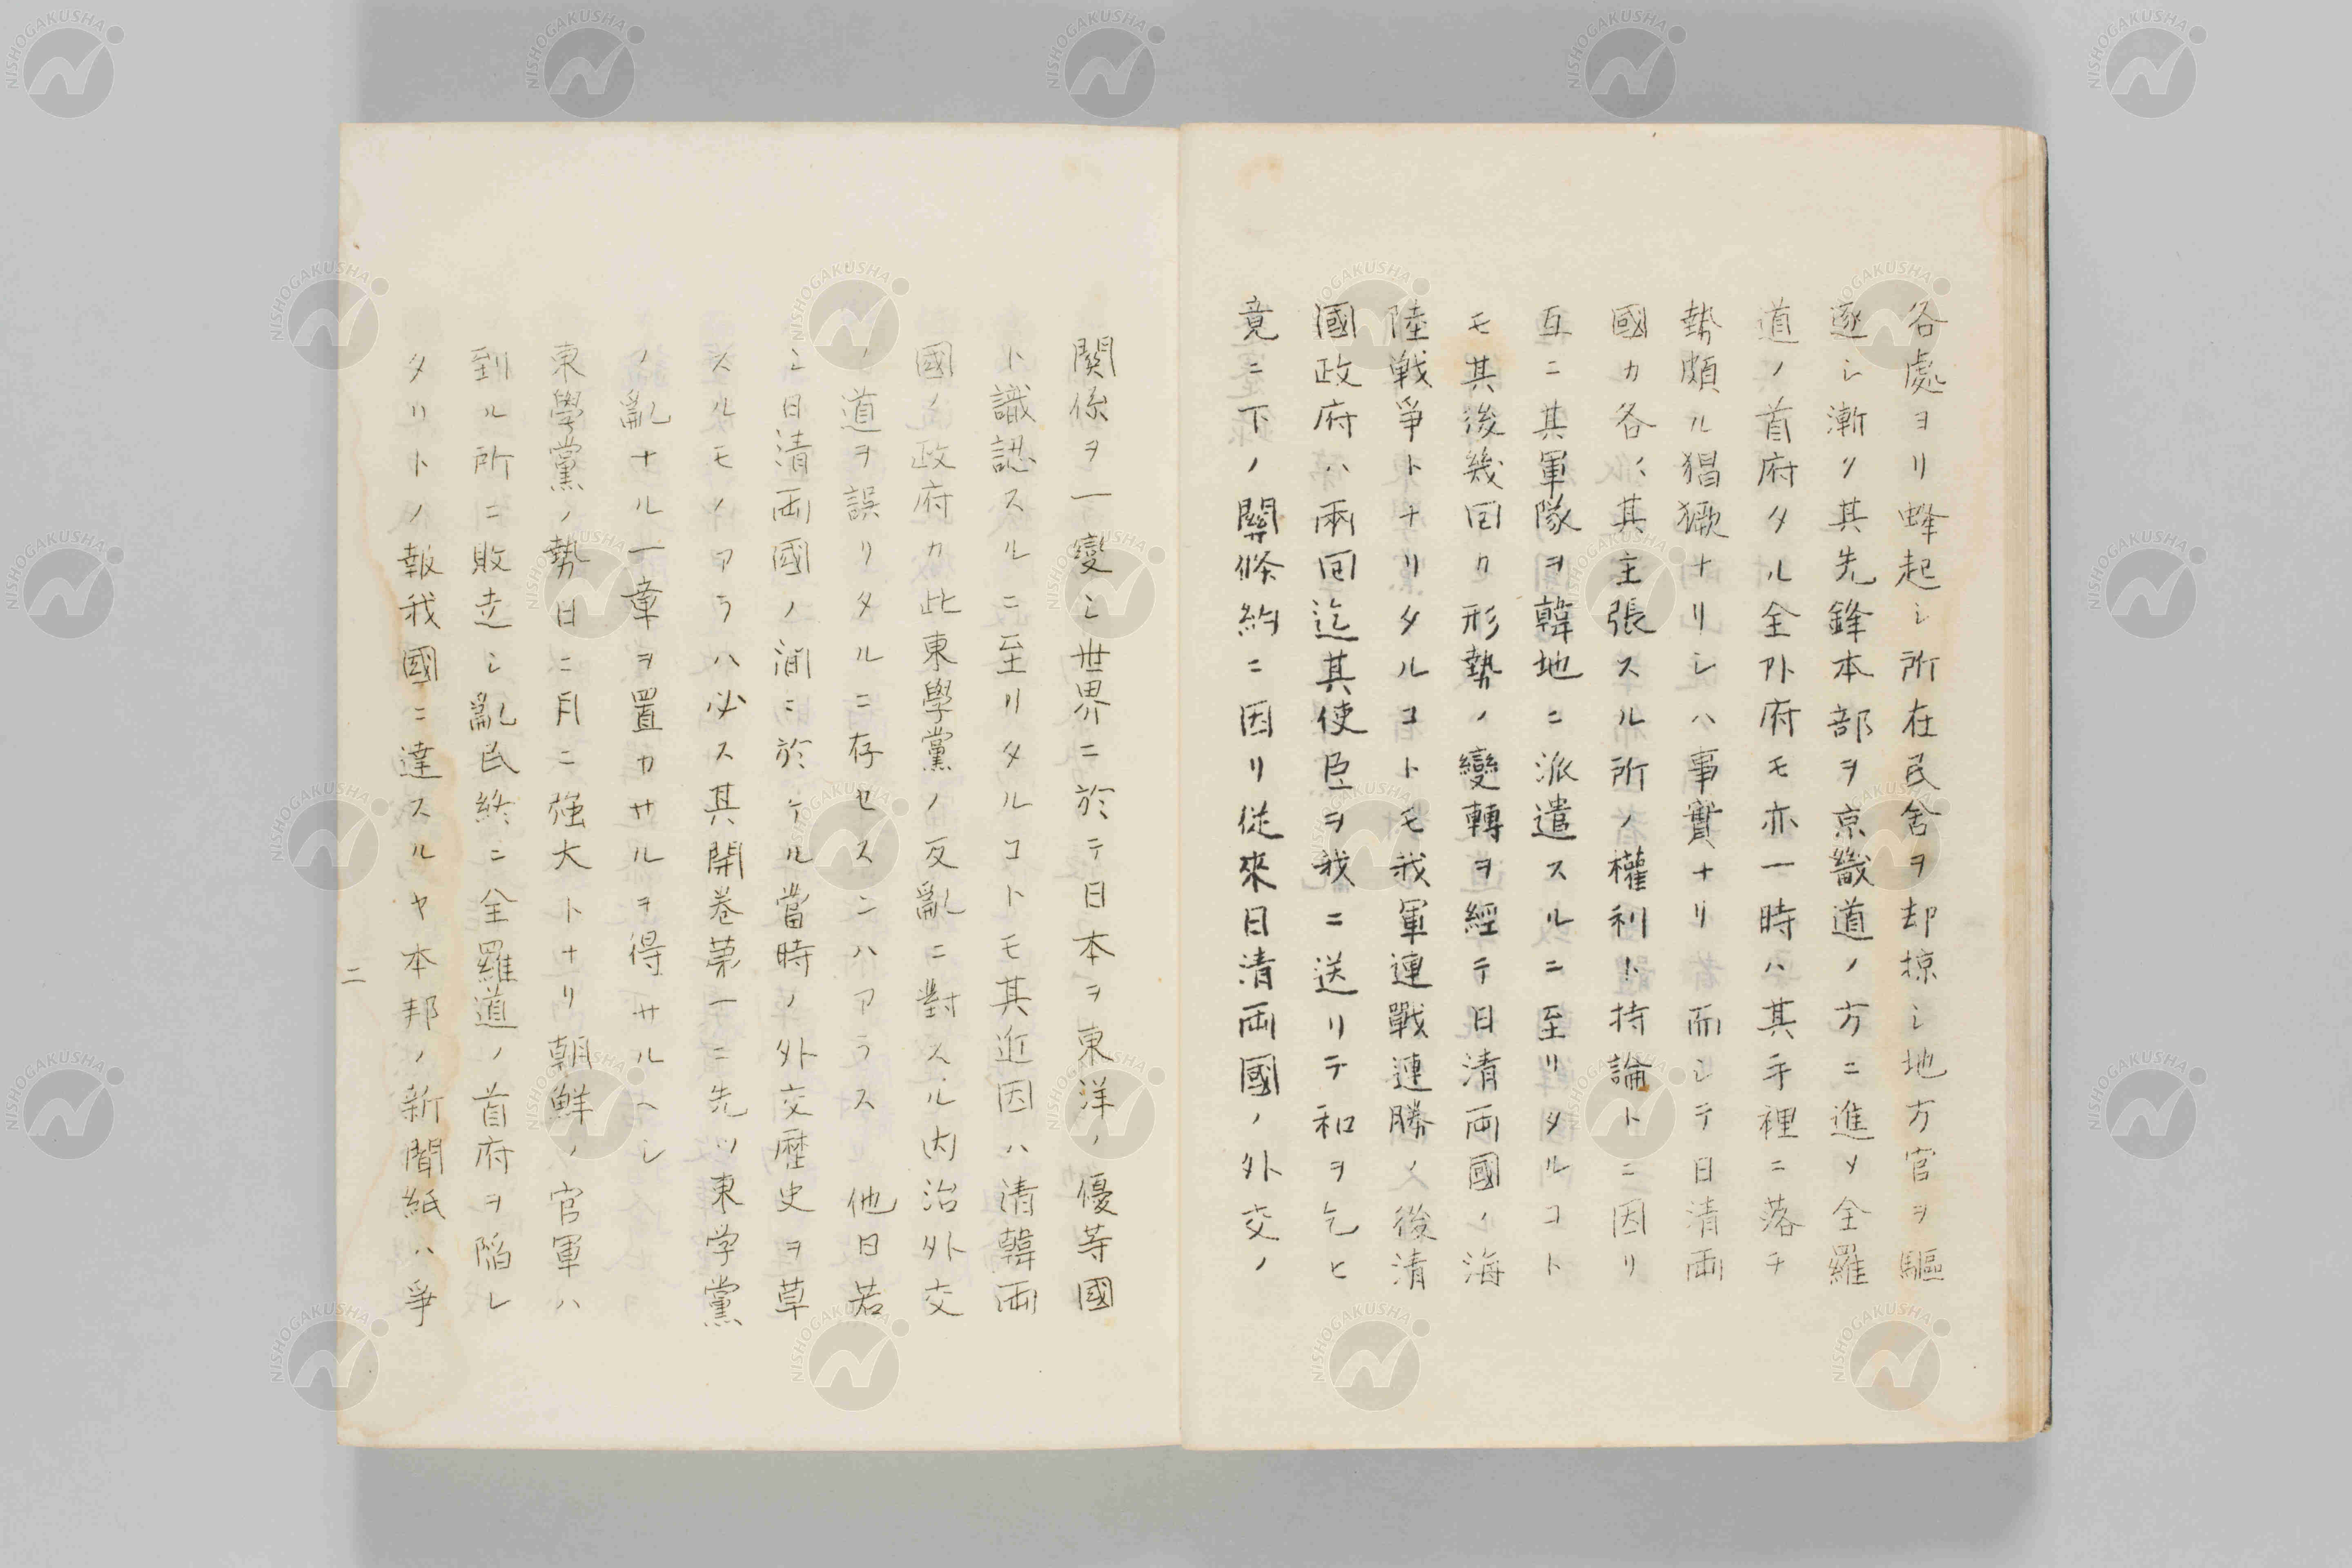 各處ヨリ蜂起シ所在民舍ヲ却掠シ地方官ヲ驅
逐シ漸ク其先鋒本部ヲ京畿道ノ方ニ進メ全羅
道ノ首府タル全州府モ亦一時ハ其手裡ニ落チ
勢頗ル猖獗ナリシハ事實ナリ而シテ日清兩
國カ各〻其主張スル所ノ權利ト持論トニ因リ
互ニ其軍隊ヲ韓地ニ派遣スルニ至リタルコト
モ其後幾回カ形勢ノ變轉ヲ經テ日清両國ノ海
陸戦爭トナリタルコトモ我軍連戰連勝ノ後清
國政府ハ兩回迄其使臣ヲ我ニ送リテ和ヲ乞ヒ
竟ニ下ノ關條約ニ因リ従來日清両國ノ外交ノ
關係ヲ一變シ世界ニ於テ日本ヲ東洋ノ優等國
ト識認スルニ至リタルコトモ其近因ハ清韓両
國ノ政府カ此東學黨ノ反亂ニ對スル内治外交
ノ道ヲ誤リタルニ存セスンハアラス他日若
シ日清両國ノ間ニ於ケル當時ノ外交歴史ヲ草
スルモノアラハ必ス其開卷第一ニ先ツ東学黨
ノ亂ナル一章ヲ置カサルヲ得サルヘシ
東學黨ノ勢日ニ月ニ强大トナリ朝鮮ノ官軍ハ
到ル所ニ敗走シ亂民終ニ全羅道ノ首府ヲ陷レ
タリトノ報我國ニ達スルヤ本邦ノ新聞紙ハ爭
二
NISHOGAKUSHA